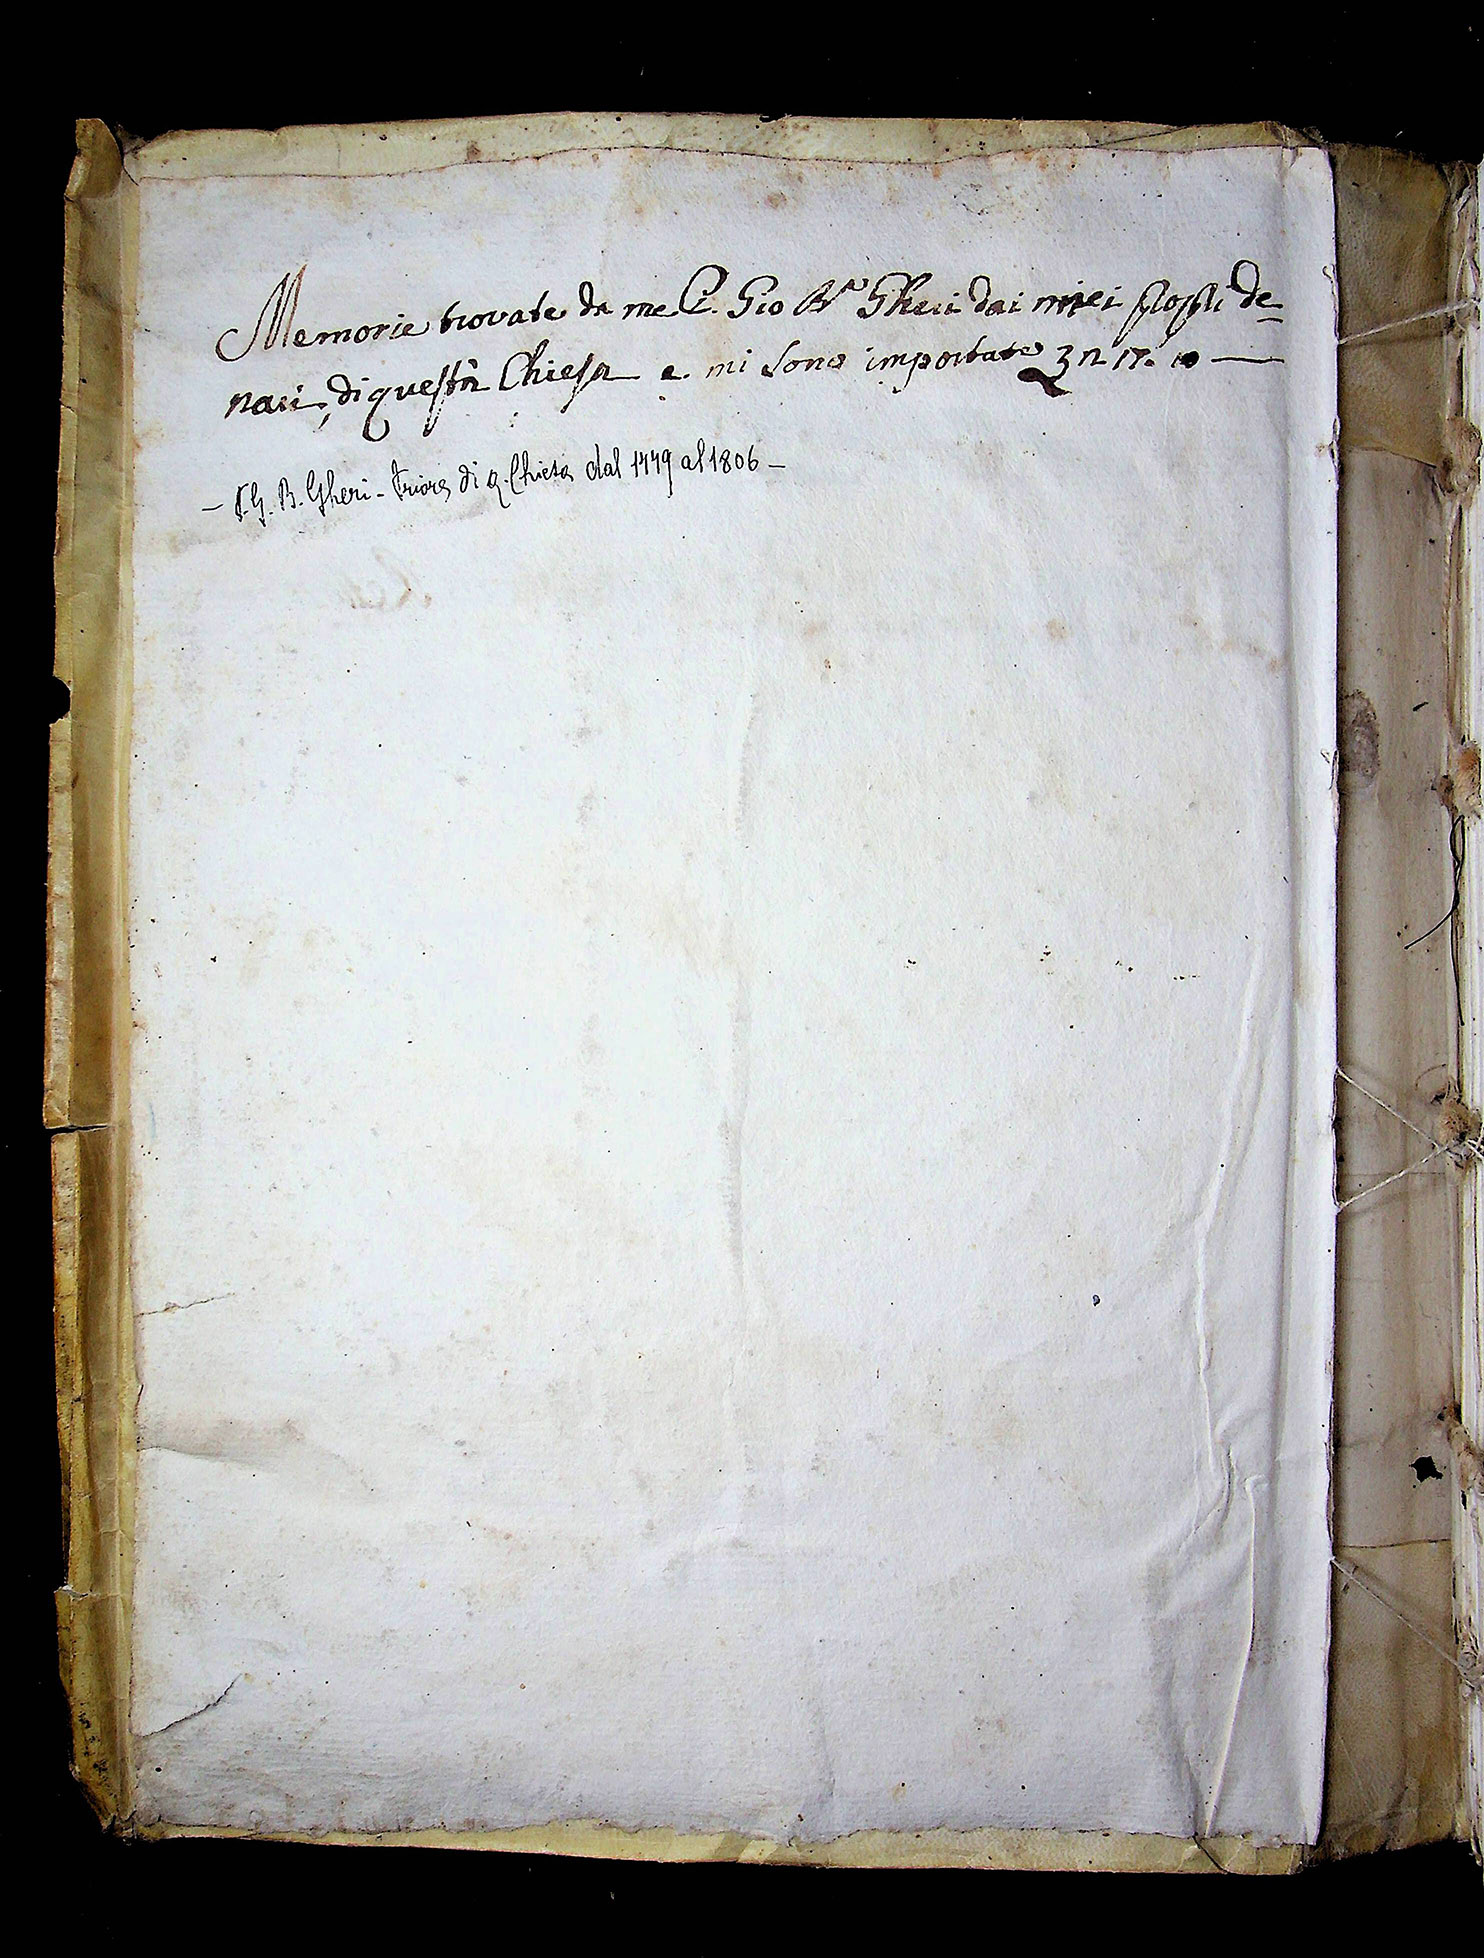 Memorie trovate da me P. Gio Bta Gheri dai miei proprii de=
nari, di questa Chiesa e mi sono importate
– P. G. B. Gheri - Priore di q. Chiesa dal 1779 al 1806 –